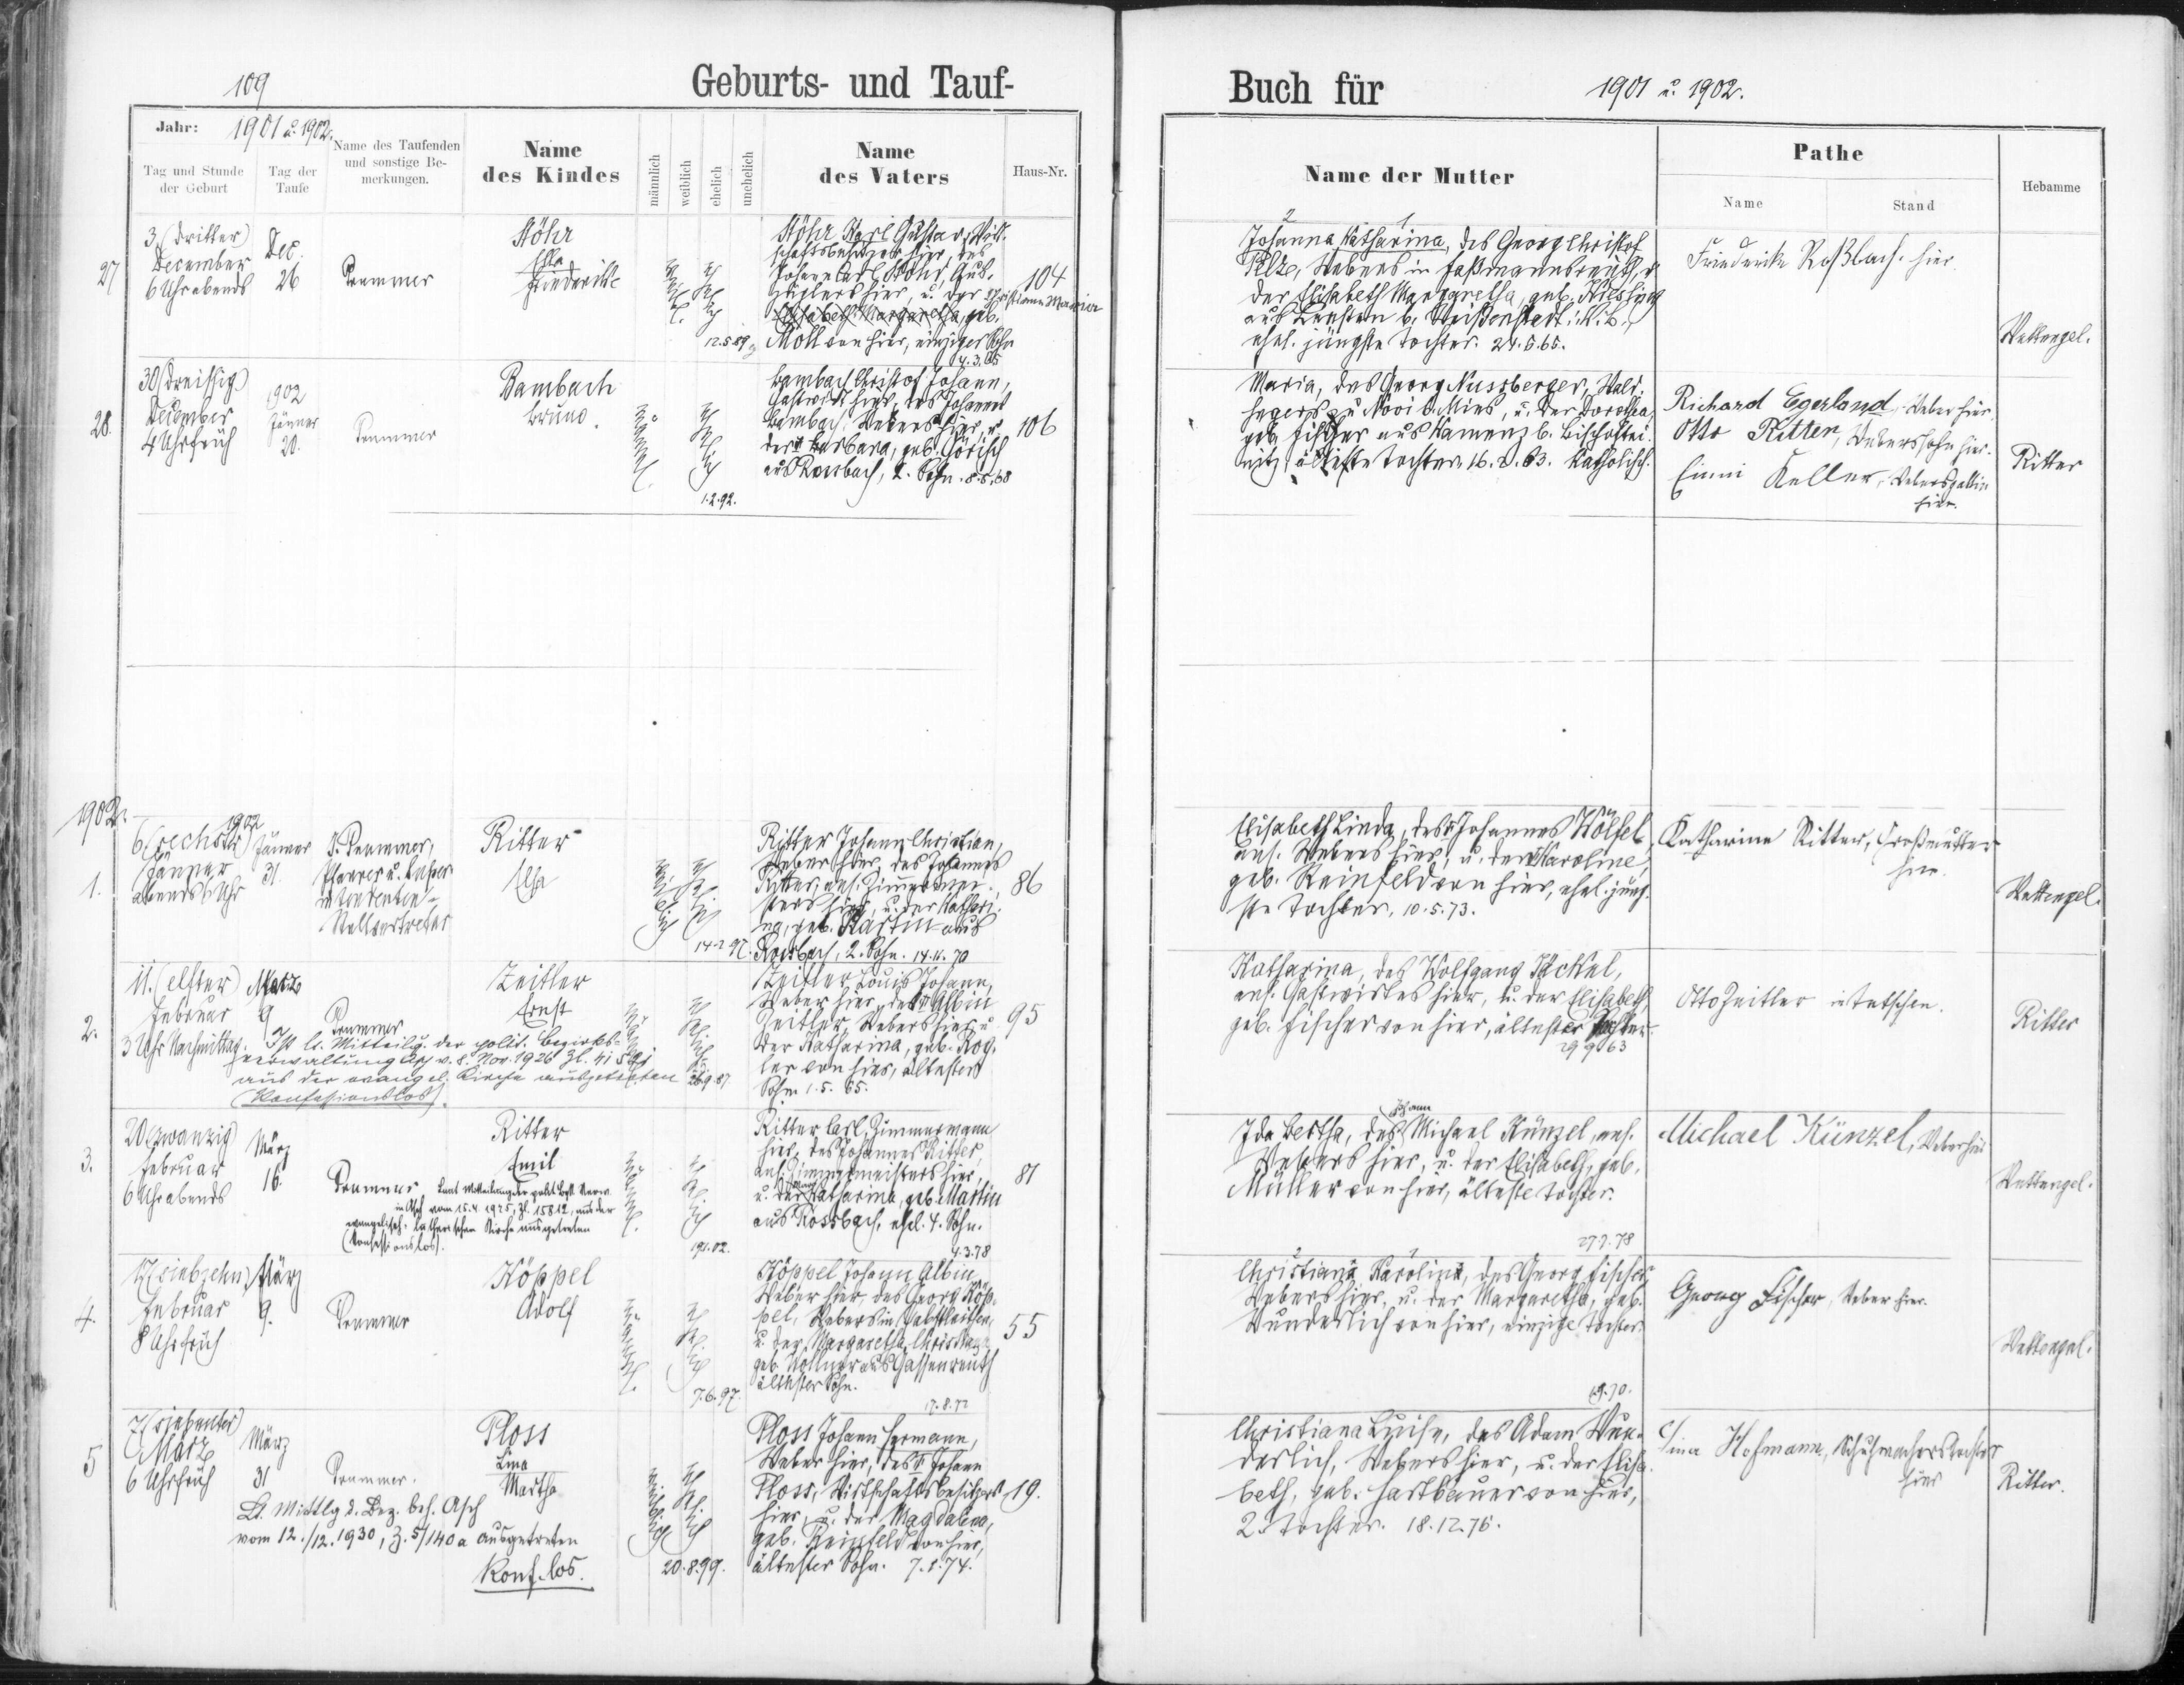 109
Geburts- und Tauf-
Buch für
1901 u. 1902.
Jahr: 1901 u. 1902.
Tag und Stunde
der Geburt
Tag der
Taufe
Name des Taufenden
und sonstige Be-
merkungen.
Name
des Kindes
männlich
weiblich
ehelich
unehelich
Name
des Vaters
Haus-Nr.
Name der Mutter
Pathe
Name
Stand
Hebamme
27
3. (dritter)
December
6 Uhr abends
Dec.
26
Trummer
Stöhr
Friederike
Stöhr Karl Gustav,
hier, u. der Christiana Maria
Elisabeth Margaretha, geb.
Moll von hier, einziger Sohn
4.3.65
12.5.89
104
2 1
Johanna Katharina, des Georg Christof
Pelz, Webers in
der Elisabeth Margaretha, geb.
ehel. jüngste Tochter. 24.5.65.
Friederike Roßbach. hier
Wettengel.
28.
30 (dreißig)
December
4 Uhr früh
902
Jänner
20.
Trummer
Bambach
Bruno.
männl.
ehelich
1.2.92.
Bambach Christof Johann,
Gastwirt hier, des Johannes
Bambach, Webers hier, u.
der Barbara, geb. Görisch
aus Rossbach, 2. Sohn. 8.5.68
106
Maria, des Georg Nussberger,
u. der Dorothea,
geb. Fischer aus Kamenz b. Bischoftei-
nitz älteste Tochter 16.2.63. Katholisch.
Richard Egerland, Weber hier.
Otto Ritter, Weberssohn hier.
Keller,
hier.
Ritter
1902.
1.
6. (sechster)
Jänner
abends 6 Uhr
1902
Jänner
31.
Trummer,
Pfarrer u. Super-
intendenten-
Stellvertreter
Ritter
Elsa
weiblich
ehelich
14.2.97.
Ritter Johann Christian,
Weber hier, des Johannes
Ritter, ans. Zimmermei-
sters hier, u. der Kathari-
na, geb. Martin aus
Rossbach, 2. Sohn. 14.11.70
86
Elisabeth Linda, des Johannes Wölfel
ans. Webers hier, u. der Karoline,
geb. Reinfeld von hier, ehel. jüng-
ste Tochter. 10.5.73.
Katharine Ritter, Großmutter
hier.
Wettengel.
2.
11. (elfter)
Februar
3 Uhr Nachmittag.
März
9
Trummer
Ist lt. Mitteilg. der polit. Bezirks-
verwaltung Asch v. 8. Nov. 1926 Zl.
aus der evangel. Kirche ausgetreten
(Konfessionslos).
Zeitler
Ernst
26.9.87.
Zeitler Louis Johann,
Weber hier, des Albin
Zeitler, Webers hier u.
der Katharina, geb. Rog-
ler von hier, ältester
Sohn 1.5.65.
95
Katharina, des Wolfgang Jäckel,
ans. Gastwirtes hier, u. der Elisabeth,
geb. Fischer von hier, älteste Tochter
29.9.63
Otto Zeitler in Tetschen.
Ritter
3.
20 (zwanzig)
Februar
6 Uhr abends
März
16.
Trummer
Laut Mitteilung der polit. Bez. Verw.
in Asch vom 15.4.1925, Zl. 15812, aus der
evangelisch-lutherischen Kirche ausgetreten
(konfessionslos).
Ritter
Emil
männl.
ehelich
19.1.02.
Ritter Carl, Zimmermann
hier, des Johannes Ritter,
ans. Zimmermeisters hier,
u. der Katharina, geb. Martin
aus Rossbach, ehel. 4. Sohn.
4.3.78
81
Ida Bertha, des Johann Michael Künzel, ans.
Webers hier, u. der Elisabeth, geb.
Müller von hier, älteste Tochter.
27.7.78
Michael Künzel, Weber hier
Wettengel.
4.
17 (siebzehn)
Februar
8 Uhr früh
März
9.
Trummer
Köppel
Adolf
männl.
ehelich
7.6.97.
Köppel Johann Albin,
Weber hier, des Georg Köp-
pel, Webers in
u. der Margaretha Christiana
geb. aus Gassenreuth
ältester Sohn.
17.8.72
55
2 1
Christiana Karolina, des Georg Fischer,
Webers hier, u. der Margaretha, geb.
Wunderlich von hier, einzige Tochter.
Georg Fischer, Weber hier.
Wettengel.
5
7 (siebenter)
März
6 Uhr früh
März
31
Trummer.
Lt. Mittlg d. Bez. beh. Asch
vom 12./12. 1930, Z. 5/140a ausgetreten
Konf.los.
Ploss
Lina
Martha
weiblich
ehelich
20.8.99.
Ploss Johann Hermann,
Weber hier, des Johann
Ploss, Wirtschaftsbesitzers
hier, u. der Magdalena,
geb. Reinfeld von hier,
ältester Sohn. 7.1.74.
19.
Christiana Luise, des Adam Wun-
derlich, Webers hier, u. der Elisa-
beth, geb. Hartbauer von hier,
2. Tochter. 18.12.76.
Lina Hofmann, Schuhmacherstochter
hier
Ritter.